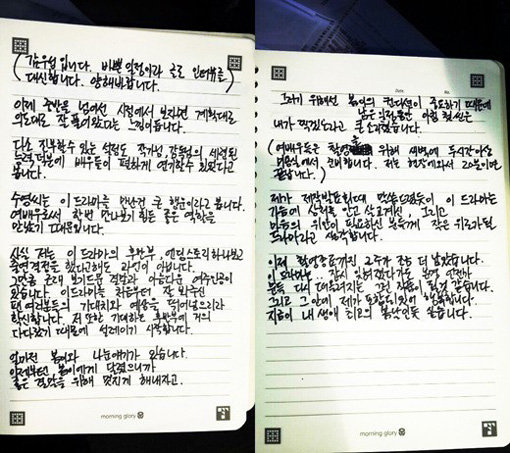 (김우빈입니다. 바쁜 일정이라 글로 인터뷰를
대신합니다. 양해바랍니다.)
이제 중반을 넘어선 시점에서 보자면 계획대로
의도대로 잘 풀어왔다는 느낌이듭니다.
다소 진부할수 있는 설정도 작가님, 감독님의 세련된
노력덕분에 배우들이 편하게 연기할수 있었다고
봅니다.
수영씨는 이 드라마를 만난건 큰 행운이라고 봅니다.
여배우로서 한번 만나보기 힘든 좋은 역할을
만났기 때문입니다.
사실 저는 이 드라마의 후반부, 엔딩스토리 하나보고
출연결정을 했다고해도 과언이 아닙니다.
그만큼 온대 보기드문 결말과 아름다운 여주인공이
있습니다. 이드라마는 처음부터 잘 봐주신
팬 여러분들의 기대치와 예상을 뛰어넘으리라
확신합니다. 저 또한 기대하는 후반부에 거의
다다랐기 때문에 설레이기 시작합니다.
얼마전 봄이와 나눈얘기가 있습니다.
이제부턴 봄이에게 달렸으니까
좋은 결말을 위해 멋지게 해내자고.
morning glory
Date. No.
그러기 위해선 봄이의 컨디션이 중요하기 때문에
남은 일정동안 아침 첫씬은
내가 찍겠노라고 큰소리쳤습니다.
(여배우들은 촬영을 위해 새벽에 두시간이상
미용실에서 준비합니다. 저는 현장에와서 20분이면
끝납니다.)
제가 제작발표회때 말씀드렸듯이 이 드라마는
가슴에 상처를 안고 살고계신, 그리고
마음의 위안이 필요하신 분들께 작은 위로가될
드라마라고 생각합니다.
이제 촬영종료까진 고작 좀 더 남았습니다.
이 드라마는.. 잠시 잊혀졌다가도 봄여 언젠가
문득 다시 떠올려지는 그런 작품이 될것 같습니다.
그리고 그 안에 제가 포함되있어 행복합니다.
지금이 내 생애 최고의 봄날인듯 싶습니다.
morning glory